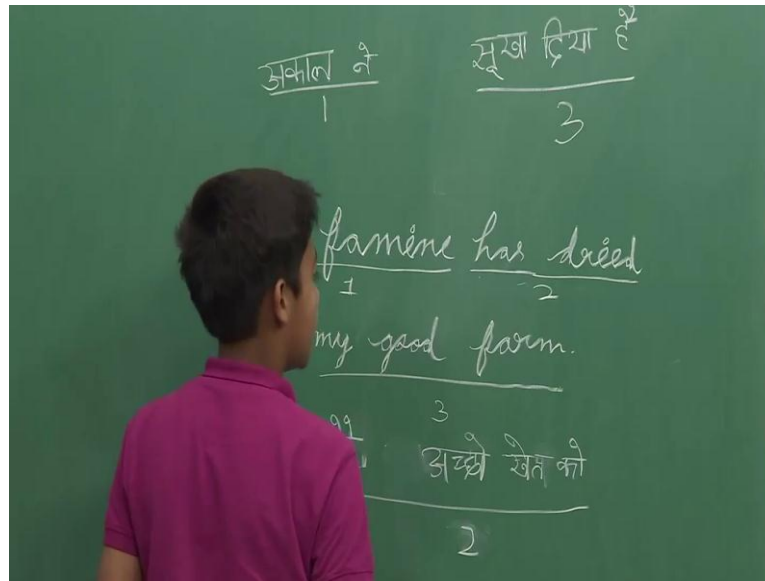 अकाल ने सूखा दिया है
1 3
famine has dried
1 2
my good farm.
3
अच्छे खेत को
2